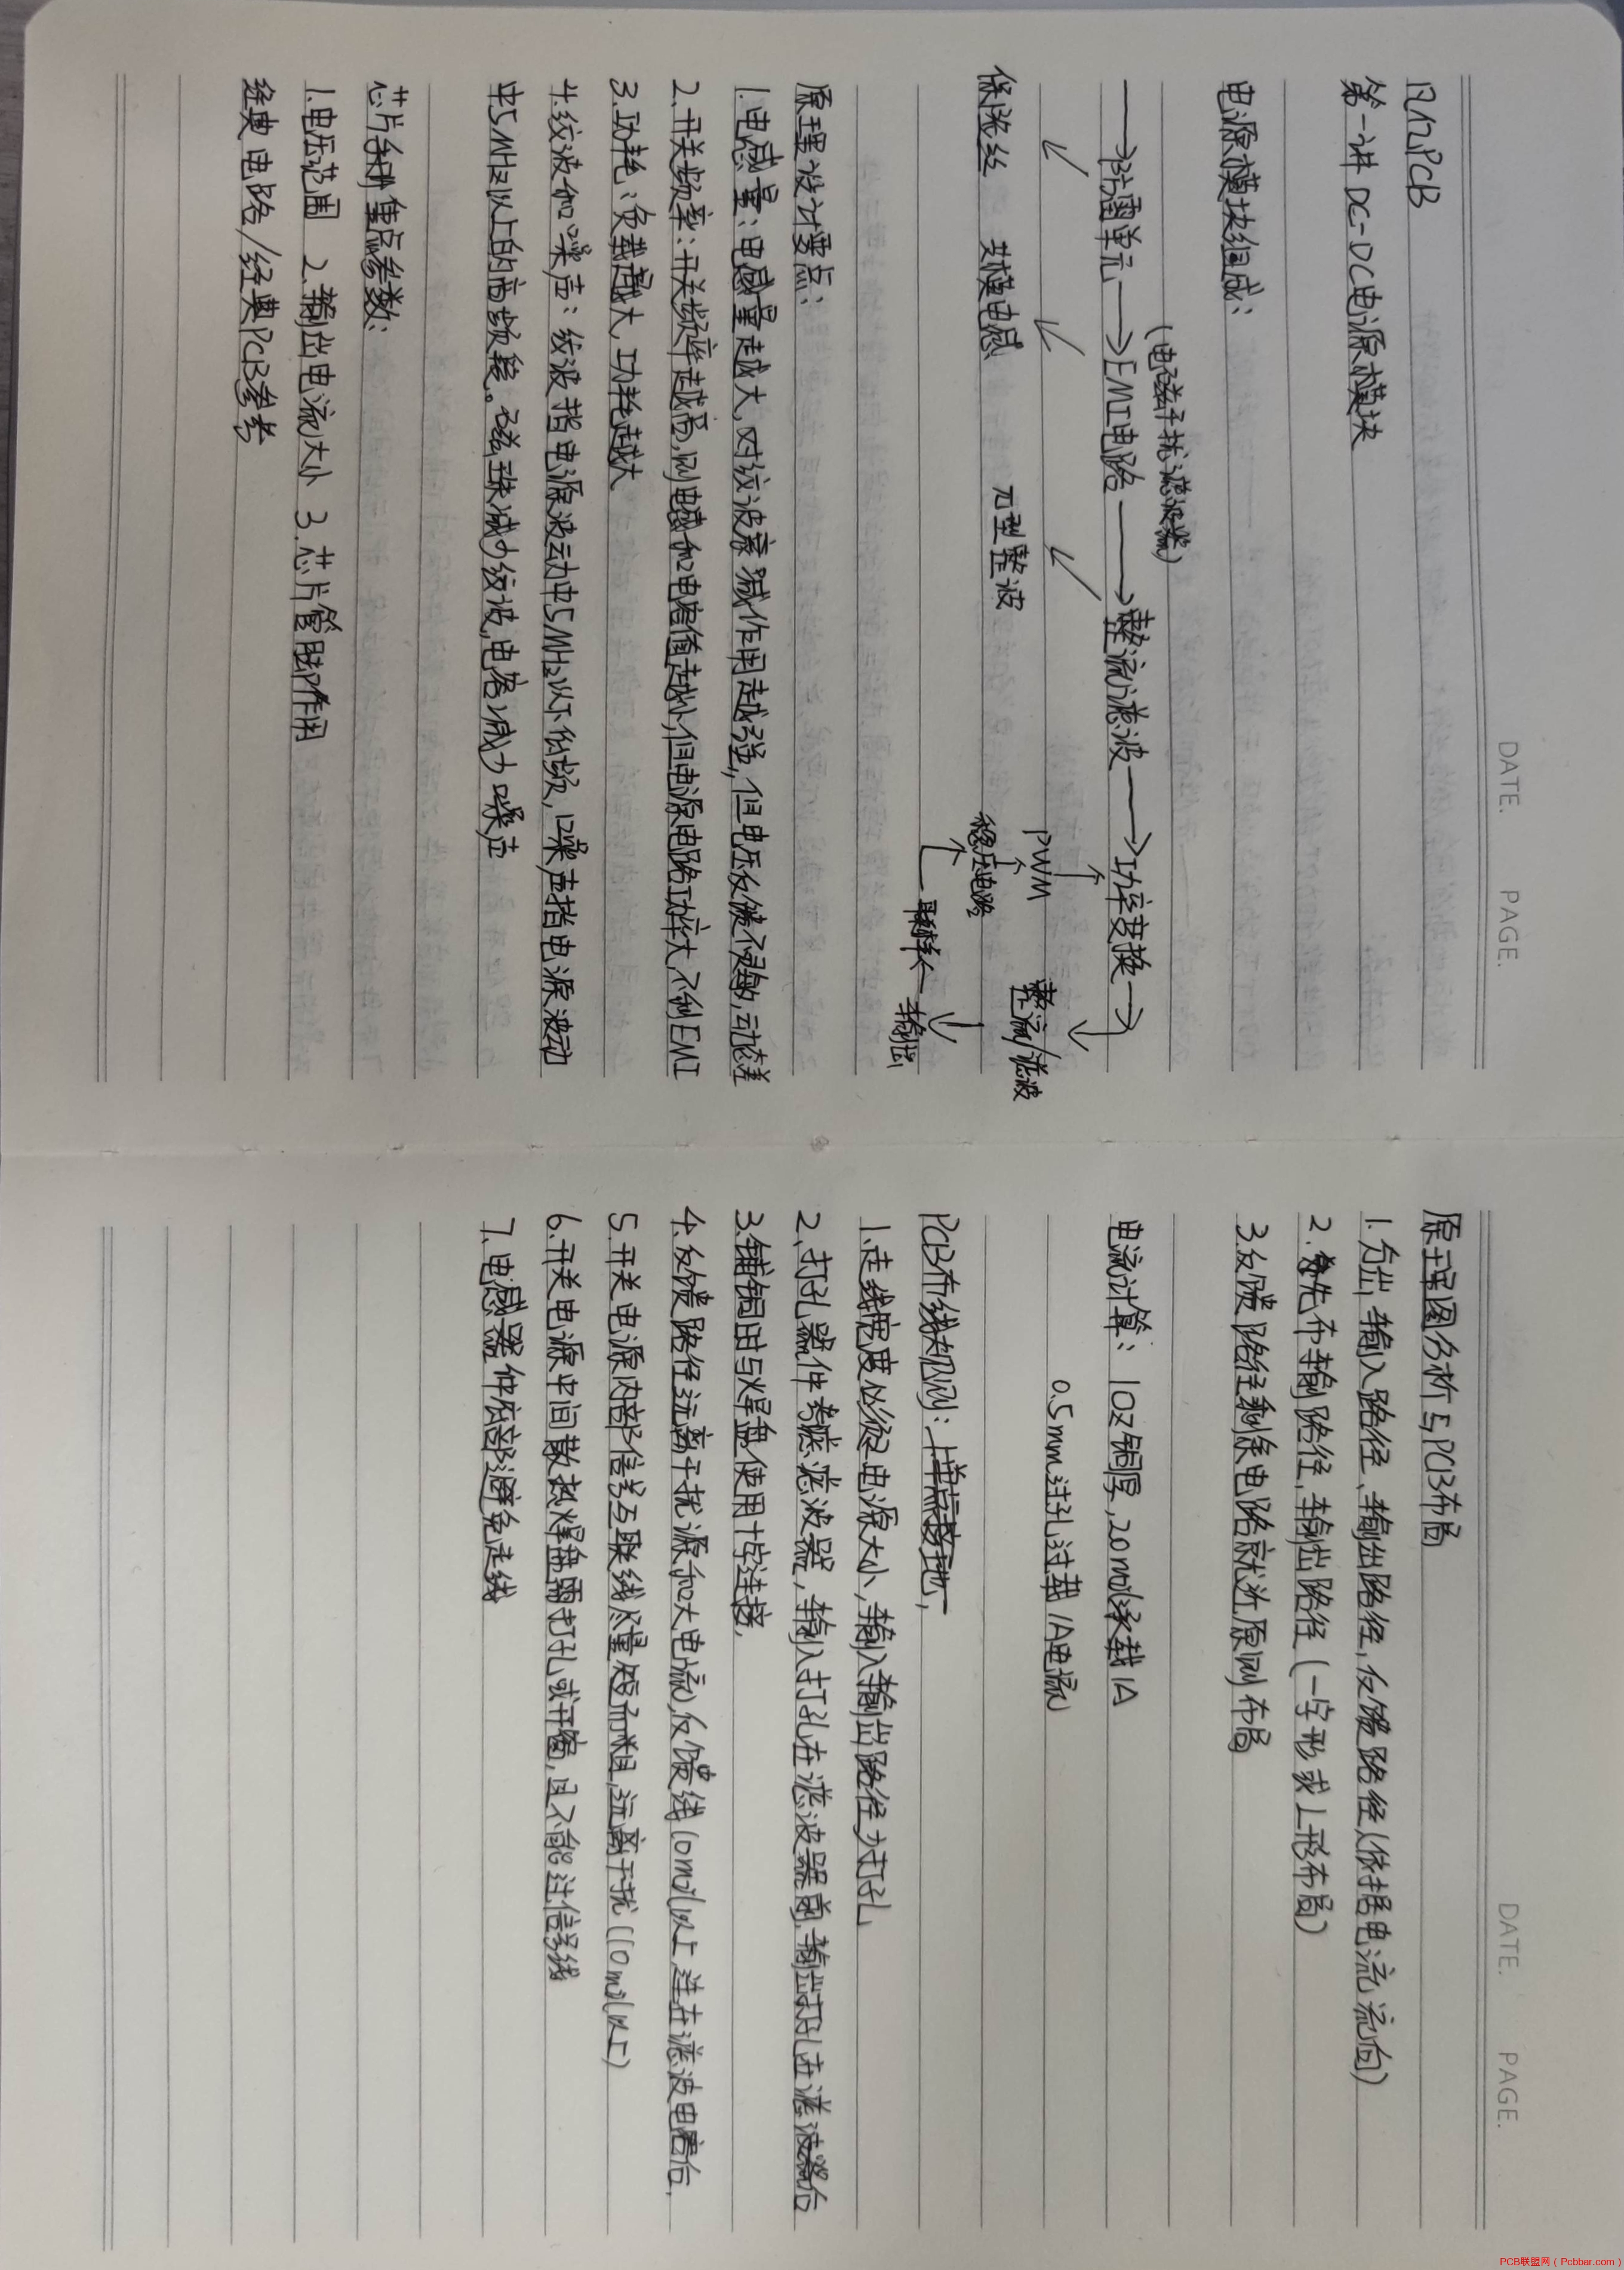 DATE. PAGE.
凡亿PCB
第一讲 DC-DC电源模块
电源模块组成：
(电磁干扰滤波器)
防雷单元
EMI电路
整流滤波
功率变换
保险丝 共模电感 π型整波
PWM
整流/滤波
稳压电路
取样
输出
原理设计要点：
1.电感量：电感量越大，对纹波衰减作用越强，但电压反馈不灵敏，动态差
2.开关频率：开关频率越高，则电感和电容值越小，但电源电路功率大，不利EMI
3.功耗：负载越大，功耗越大
4.纹波和噪声：纹波指电源波动中5MHz以下低频，噪声指电源波动
中5MHz以上的高频段。磁珠减少纹波，电容减少噪声
芯片手册重点参数：
1.电压范围 2.输出电流大小 3.芯片管脚作用
经典电路/经典PCB参考
DATE. PAGE.
原理图分析与PCB布局
1.分出输入路径、输出路径，反馈路径(依据电流流向)
2.先布输入路径，输出路径(一字形或L形布局)
3.反馈路径剩余电路就近原则布局
电流计算：1OZ铜厚，20mil承载1A
0.5mm过孔过载1A电流
PCB布线规则：1.单点接地，
1.走线宽度必须≥电源大小，输入输出路径为打孔
2.打孔器件考虑滤波器，输入打孔在滤波器前，输出打孔在滤波器后
3.铺铜由与焊盘使用十字连接，
4.反馈路径远离干扰源和大电流，反馈线10mil以上连在滤波电容后，
5.开关电源内部信号互联线尽量短而粗，远离干扰(10mil以上)
6.开关电源中间散热焊盘需打孔或开窗，且不能过信号线
7.电感器件底部避免走线
PCB联盟网（Pcbbar.com）